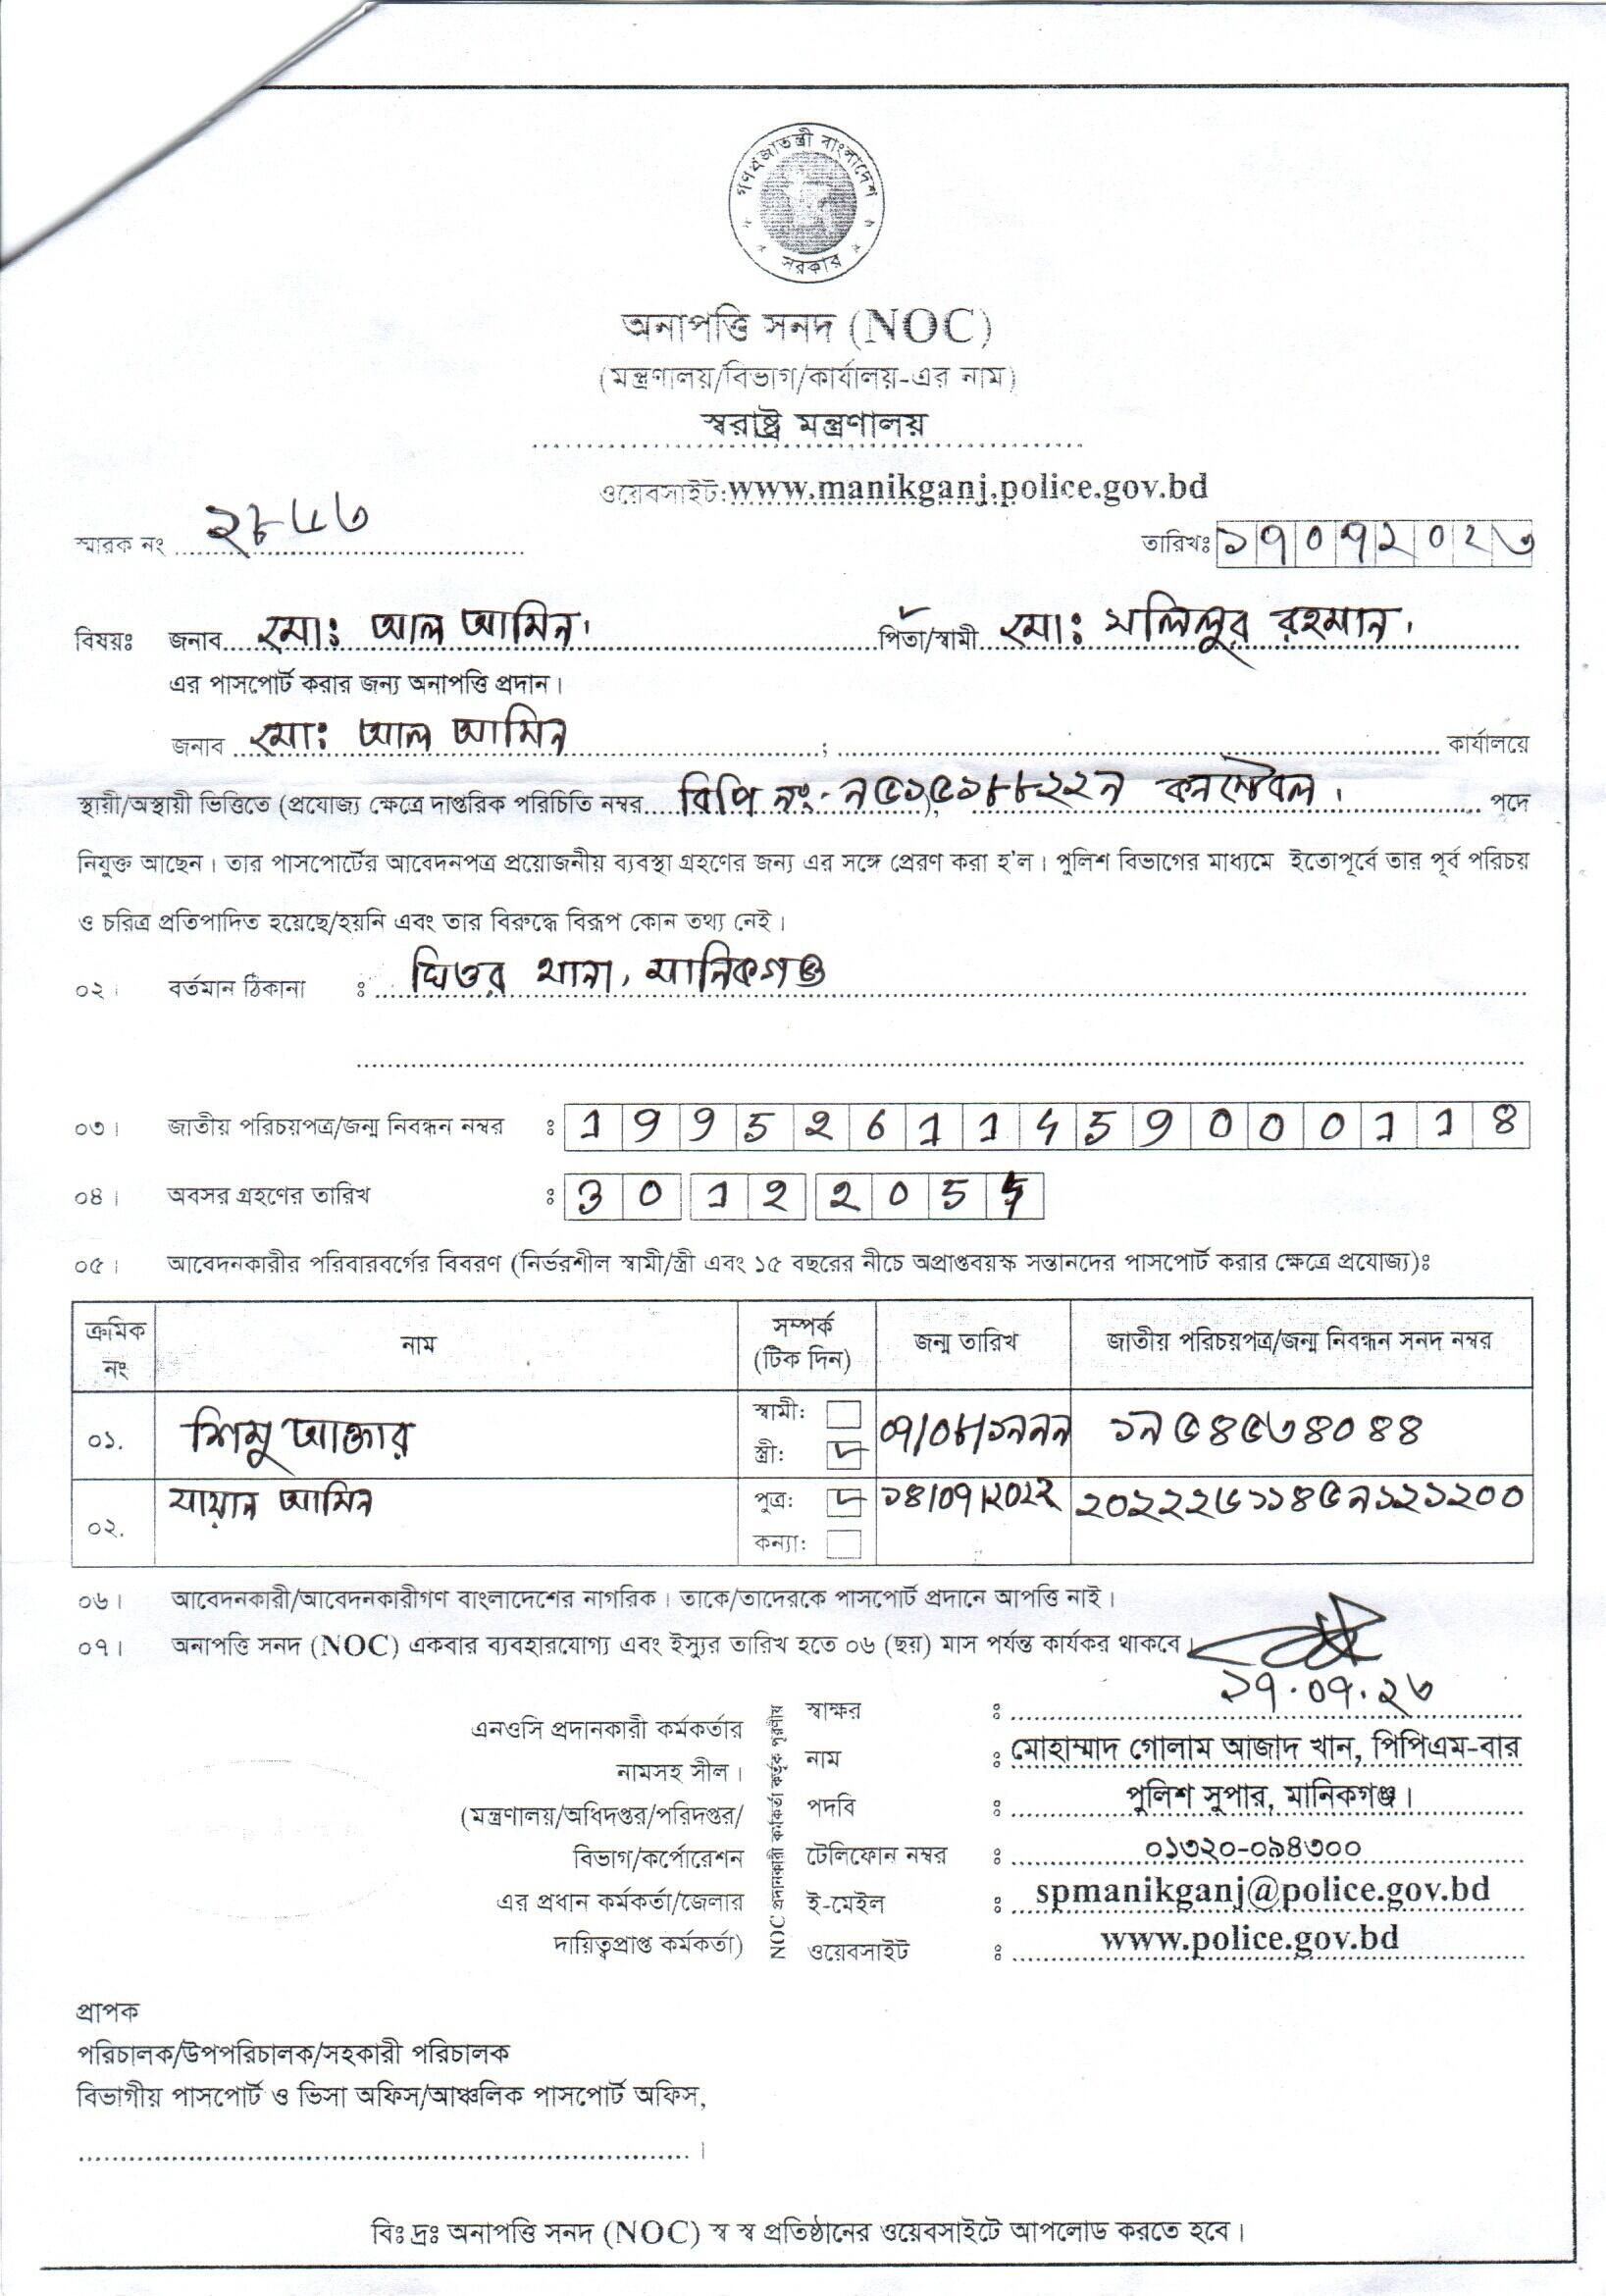 গণপ্রজাতন্ত্রী বাংলাদেশ
সরকার
অনাপত্তি সনদ (NOC)
(মন্ত্রণালয়/বিভাগ/কার্যালয়-এর নাম)
স্বরাষ্ট্র মন্ত্রণালয়
ওয়েবসাইট: www.manikganj.police.gov.bd
স্মারক নং ২৮৫৬ তারিখঃ ১৭০৭২০২৩
বিষয়ঃ জনাব মোঃ আল আমিন। পিতা/স্বামী মোঃ রহমান।
এর পাসপোর্ট করার জন্য অনাপত্তি প্রদান।
জনাব মোঃ আল আমিন ; কার্যালয়ে
স্থায়ী/অস্থায়ী ভিত্তিতে (প্রযোজ্য ক্ষেত্রে দাপ্তরিক পরিচিতি নম্বর বিপি নং- ৯৫১৫১৮৮২২৯ ), কনস্টেবল। পদে
নিযুক্ত আছেন। তার পাসপোর্টের আবেদনপত্র প্রয়োজনীয় ব্যবস্থা গ্রহণের জন্য এর সঙ্গে প্রেরণ করা হ'ল। পুলিশ বিভাগের মাধ্যমে ইতোপূর্বে তার পূর্ব পরিচয়
ও চরিত্র প্রতিপাদিত হয়েছে/হয়নি এবং তার বিরুদ্ধে বিরূপ কোন তথ্য নেই।
০২। বর্তমান ঠিকানা ঃ ঘিওর থানা, মানিকগঞ্জ
০৩। জাতীয় পরিচয়পত্র/জন্ম নিবন্ধন নম্বর ঃ 19952611459000118
০৪। অবসর গ্রহণের তারিখ ঃ 30 12 2054
০৫। আবেদনকারীর পরিবারবর্গের বিবরণ (নির্ভরশীল স্বামী/স্ত্রী এবং ১৫ বছরের নীচে অপ্রাপ্তবয়স্ক সন্তানদের পাসপোর্ট করার ক্ষেত্রে প্রযোজ্য)ঃ
ক্রমিক নং নাম সম্পর্ক (টিক দিন) জন্ম তারিখ জাতীয় পরিচয়পত্র/জন্ম নিবন্ধন সনদ নম্বর
০১. শিমু আক্তার স্বামী: স্ত্রী: ০৭/০৮/১৯৯৯ ১৯৫৪৫৩৪০৪৪
০২. যায়ান আমিন পুত্র: কন্যা: ১৪/০৭/২০২২ ২০২২২৬১১৪৫৯১২১২০০
০৬। আবেদনকারী/আবেদনকারীগণ বাংলাদেশের নাগরিক। তাকে/তাদেরকে পাসপোর্ট প্রদানে আপত্তি নাই।
০৭। অনাপত্তি সনদ (NOC) একবার ব্যবহারযোগ্য এবং ইস্যুর তারিখ হতে ০৬ (ছয়) মাস পর্যন্ত কার্যকর থাকবে।
১৭.০৭.২৩
এনওসি প্রদানকারী কর্মকর্তার
নামসহ সীল।
(মন্ত্রণালয়/অধিদপ্তর/পরিদপ্তর/
বিভাগ/কর্পোরেশন
এর প্রধান কর্মকর্তা/জেলার
দায়িত্বপ্রাপ্ত কর্মকর্তা)
NOC প্রদানকারী কর্মকর্তা কর্তৃক পূরণীয়
স্বাক্ষর ঃ
নাম ঃ মোহাম্মাদ গোলাম আজাদ খান, পিপিএম-বার
পদবি ঃ পুলিশ সুপার, মানিকগঞ্জ।
টেলিফোন নম্বর ঃ ০১৩২০-০৯৪৩০০
ই-মেইল ঃ spmanikganj@police.gov.bd
ওয়েবসাইট ঃ www.police.gov.bd
প্রাপক
পরিচালক/উপপরিচালক/সহকারী পরিচালক
বিভাগীয় পাসপোর্ট ও ভিসা অফিস/আঞ্চলিক পাসপোর্ট অফিস,
।
বিঃ দ্রঃ অনাপত্তি সনদ (NOC) স্ব স্ব প্রতিষ্ঠানের ওয়েবসাইটে আপলোড করতে হবে।